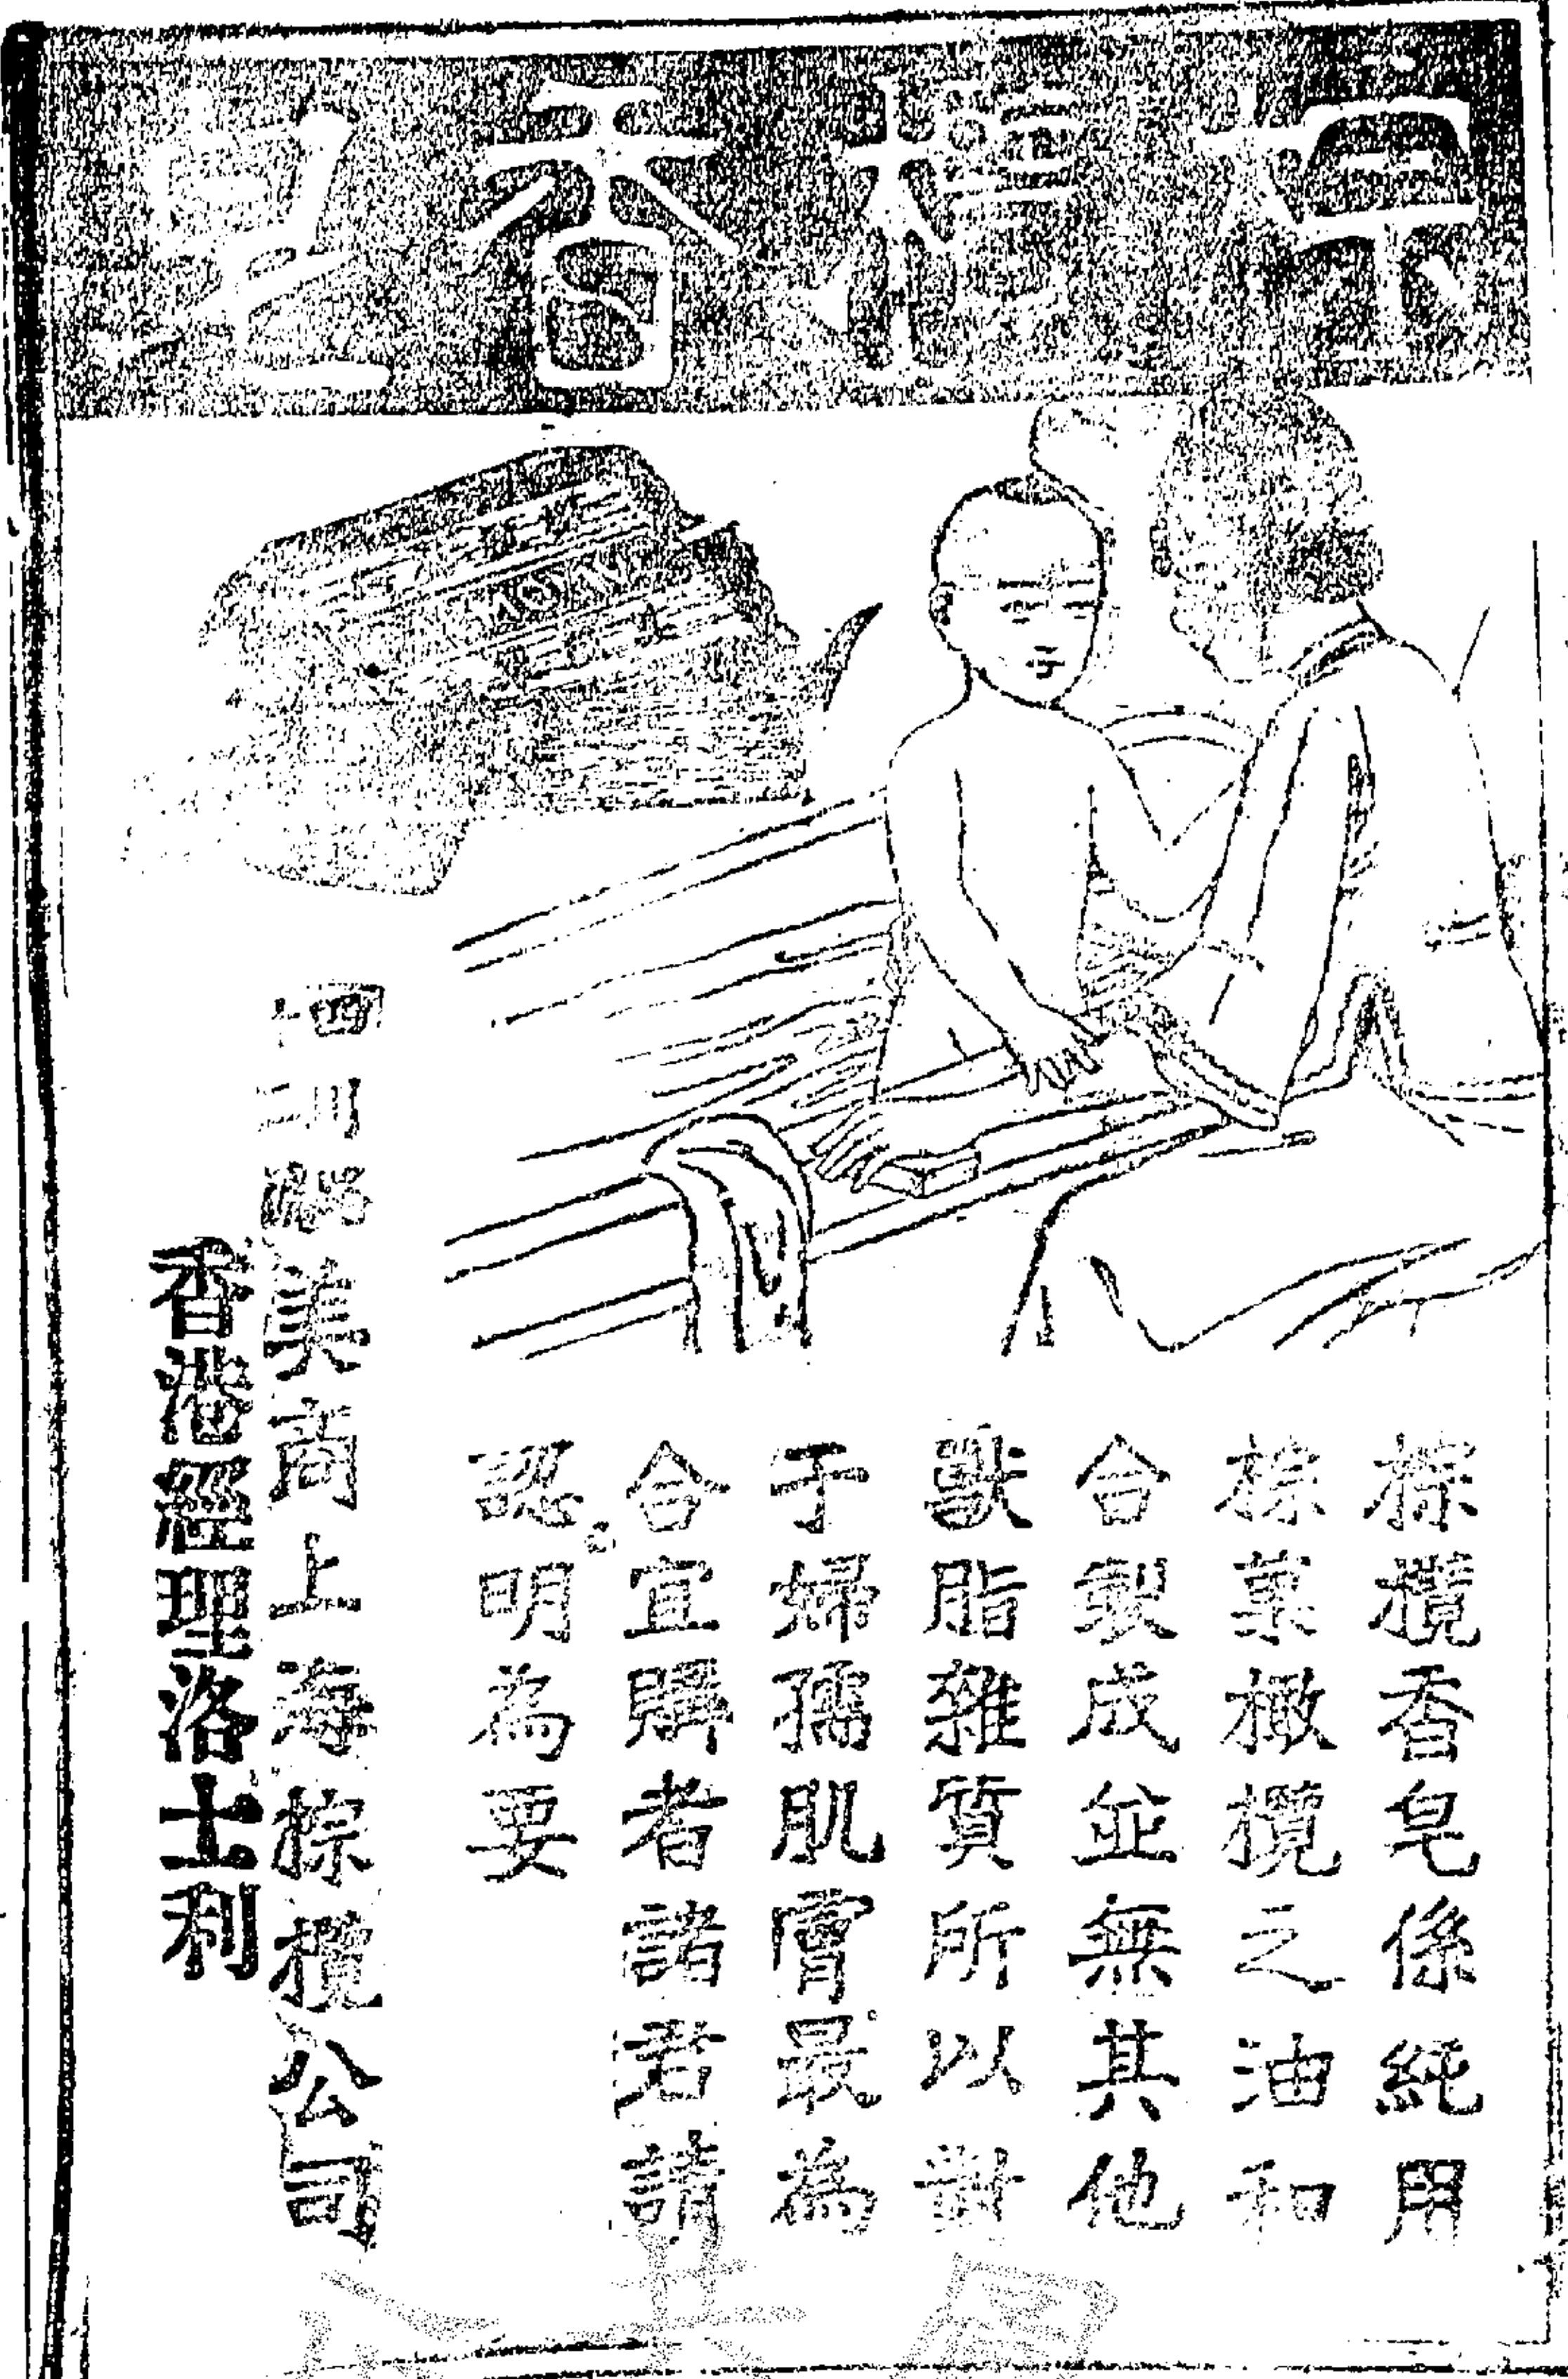 棕欖香皂
棕欖香皂係純用
棕菓橄欖之油和
合製成並無其他
獸脂雜質所以對
于婦孺肌膚最為
合宜購者諸君請
認明為要
美商上海棕欖公司
香港經理洛士利